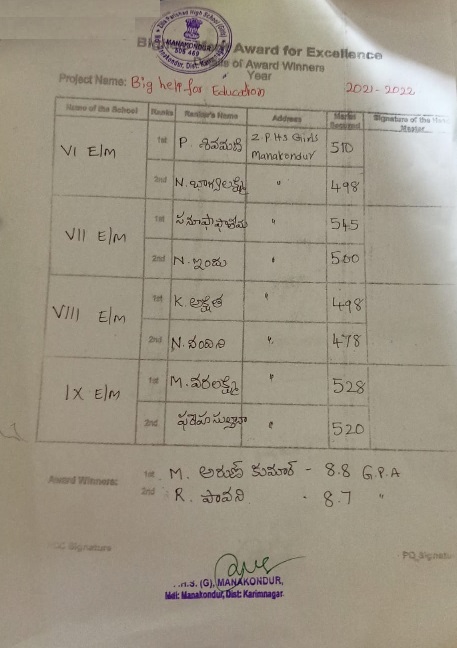 Zilla Parishad High School (Girls)
MANAKONDUR
Manakondur, Dist: Karimnagar
Award for Excellence
of Award Winners
Year
Project Name: Big help for Education 2021-2022
Name of the School Ranks Ranker's Name Address Marks Secured Signature of the Head Master
VI E/M 1st P. శివమణి Z.P.H.S Girls Manakondur 510
2nd N. భాగ్యలక్ష్మి " 498
VII E/M 1st " 545
2nd N. ఇందు " 500
VIII E/M 1st K. అక్షిత " 498
2nd N. నందిని " 478
IX E/M 1st M. వరలక్ష్మి " 528
2nd " 520
Award Winners: 1st M. అరుణ్ కుమార్ - 8.8 G.P.A
2nd R. పావని - 8.7 "
Signature
PO Signatu
H.S. (G), MANAKONDUR,
Mdl: Manakondur, Dist: Karimnagar.